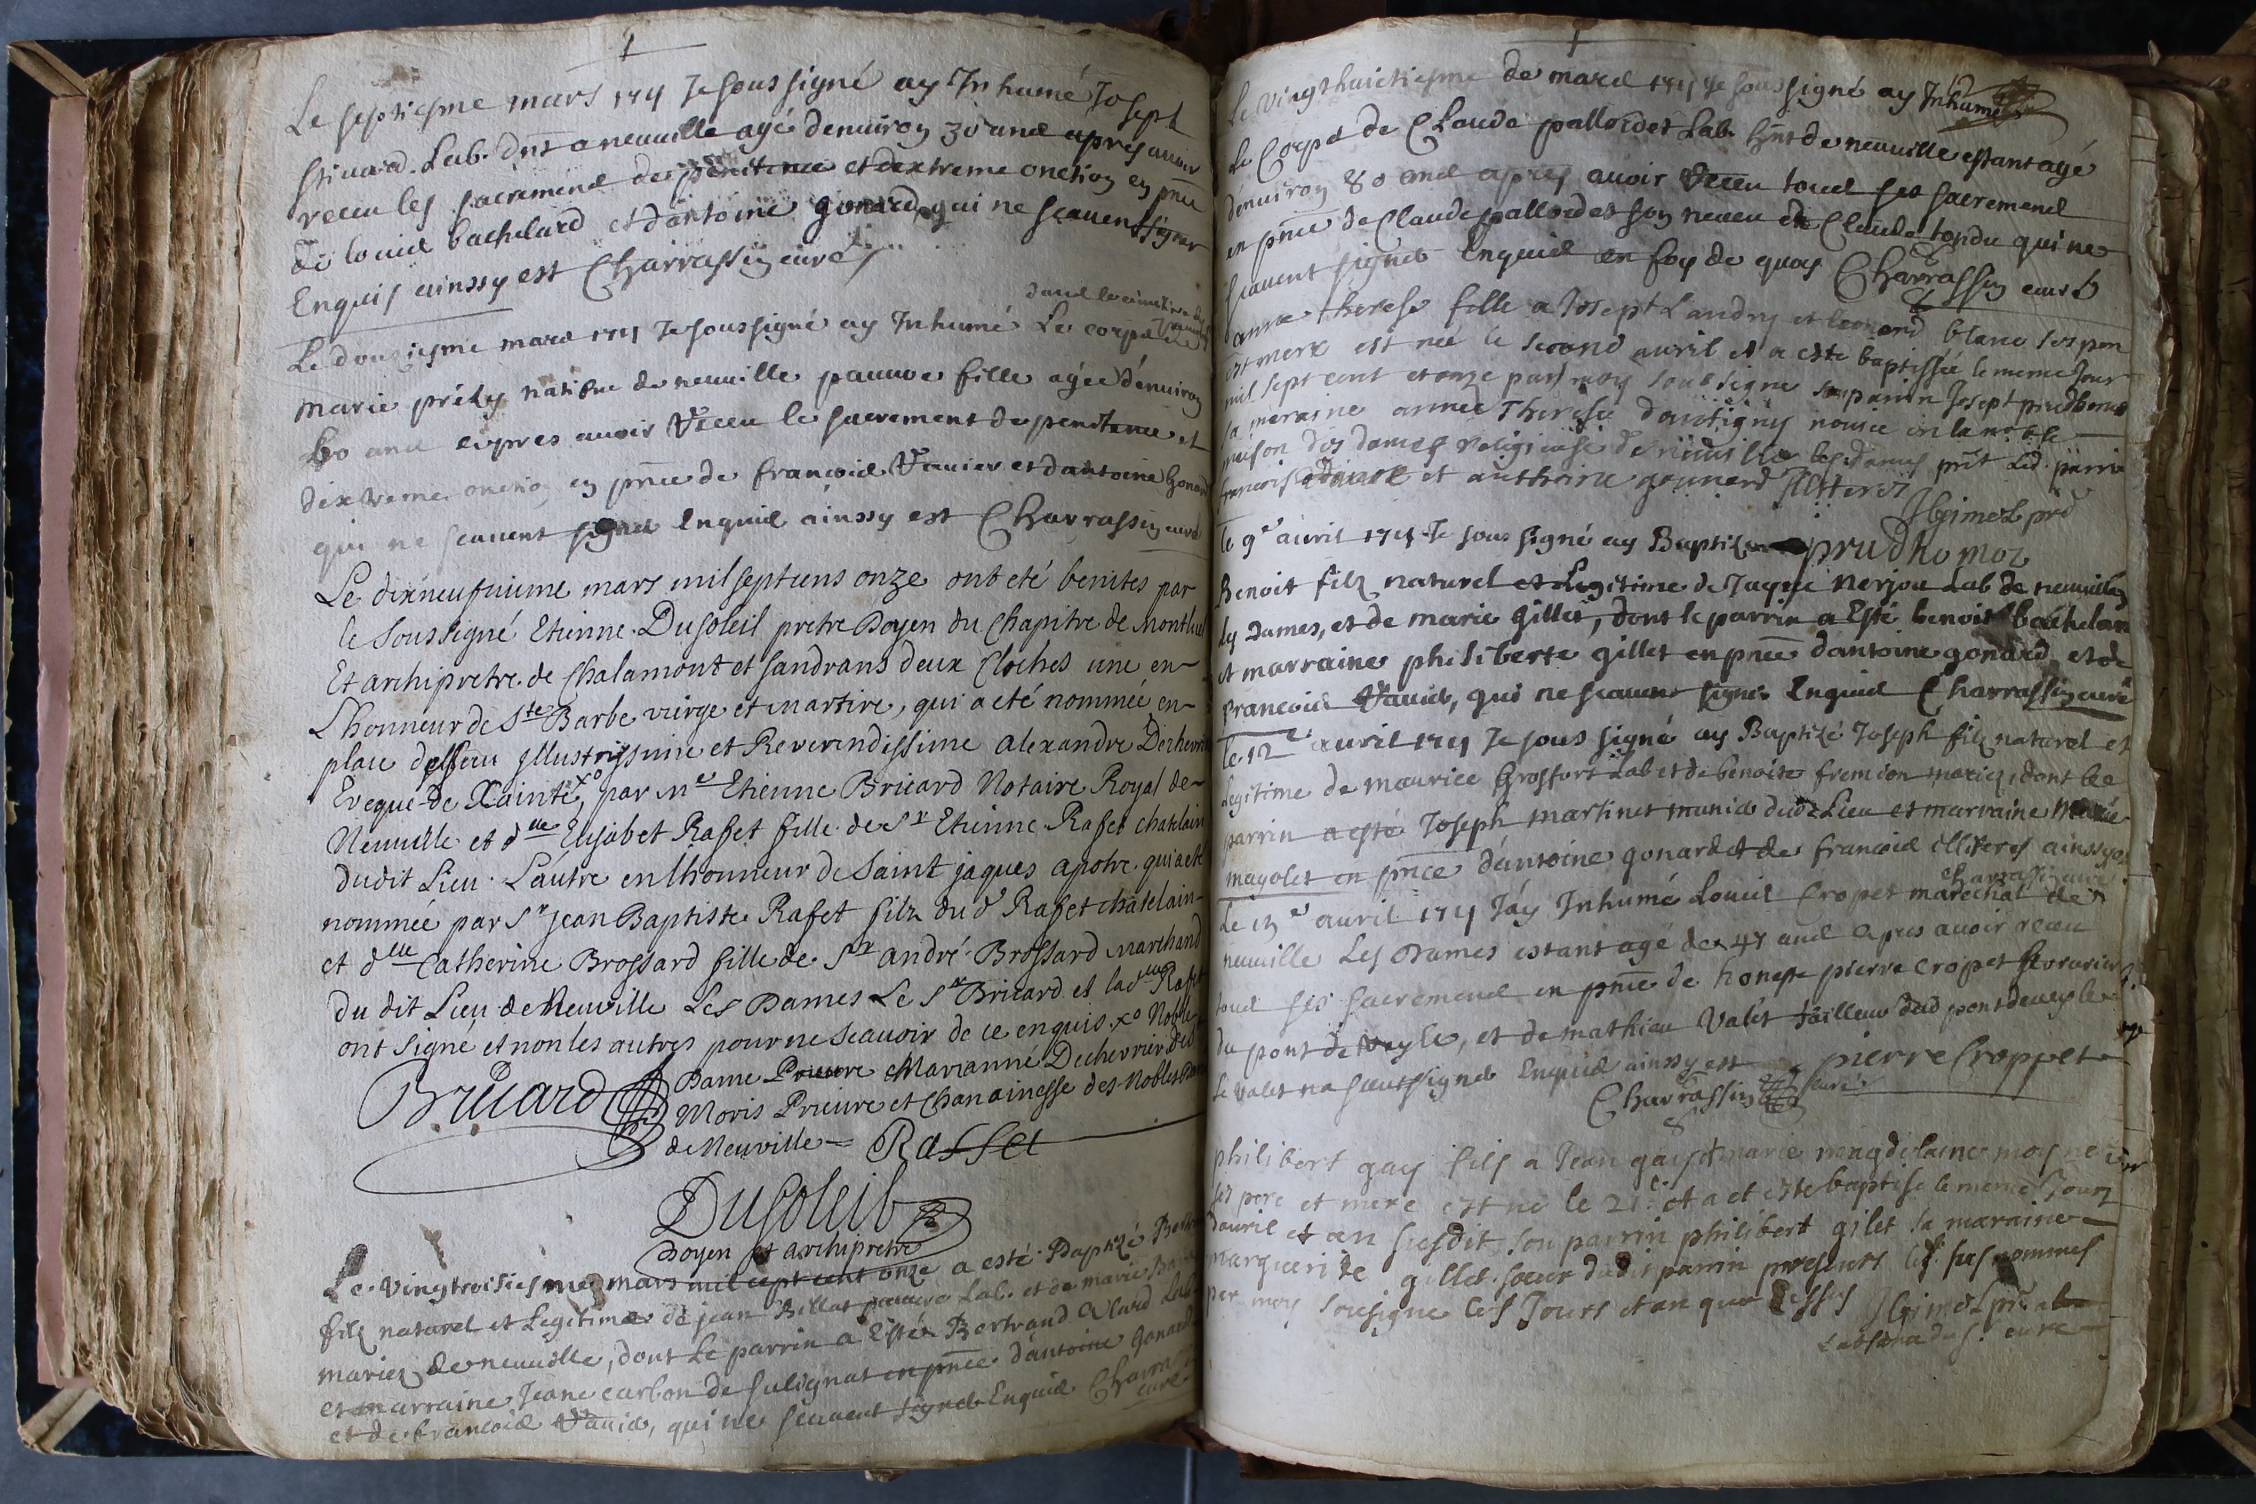 Le septiesme mars 1711 Je soussigné ay Inhumé Josept
Lab. dnt a neuuille agé denuiron 30 ans apres auoir
receu les sacremens de penitence et dextreme onction en pnce
de louis bachelard et dantoine gonard qui ne scauent signer
Enquis ainssy est Charrassin curé
dans le cimetiere
Le douziesme mars 1711 Je soussigné ay Inhumé Le corps de
marie natifue de neuuille pauure fille agée denuiron
60 ans apres auoir receu le sacrement de penitence et
dextreme onction en pnce de francois Vauier et dantoine Gonard
qui ne scauent signer Enquis ainssy est Charrassin curé
Le dixneufuieme mars mil sept cens onze ont eté benites par
le Soussigné Etienne Dusoleil pretre Doyen du Chapitre de Montluel
Et archipretre de Chalamont et Sandrans deux Cloches une en
L'honneur de Ste Barbe vierge et martire, qui a eté nommée en
place Illustrissime et Reverendissime alexandre
Eveque de Xainte, xo par Mre Etienne Bricard Notaire Royal de
Neuville et dlle Elisabet Rafet fille de Sr Etienne Rafet chatelain
dudit Lieu. L'autre en lhonneur de Saint jaques apotre qui a eté
nommée par Sr jean Baptiste Rafet filz dud Rafet chatelain
et dlle Catherine Brossard fille de Sr andré Brossard Marchand
du dit Lieu de Neuville Les Dames Le Sr Bricard et la dlle Rafet
ont signé et non les autres pour ne scavoir de ce enquis. xo Noble
Dame Prieure Marianne Dechevrier
Prieure et Chanainesse des Nobles Dames
de Neuville
Bricard
Rasset
DuSoleil
doyen et archipretre
Le vingtroisiesme mars mil sept cent onze a esté Baptizé
filz naturel et Legitime de jean Billat pauure Lab. et de marie
mariez de neuuille, dont Le parrin a Esté Bertrand Lab
et marraine Jeane carbon de Sulignat en pnce dantoine Gonard
et de francois Vauier, qui ne scauent signer Enquis Charrassin
curé
Le vingt huictiesme de mars 1711 Je soussigné ay Inhumé
Le Corps de Claude palloides Lab. hnt de neuuille estant agé
denuiron 80 ans apres auoir receu tous ses sacremens
en pnce de Claude palloides son neueu et Claude tondu qui ne
scauent signer Enquis en foy de quoy Charrassin curé
anne therese fille a Josept Landry et blanc ses pere
et mere est née le second auril et a esté baptissée le meme Jour
mil sept cent et onze par moy soubsigne son parrin Josept prudhomme
sa maraine anne Therese dantigny nouice en la noble
maison des dames religieuse de neuuille les dames pnt Led. parrin
francois et anthoine gonnard Illiteres
prudhomoz
le 9e auril 1711 Je sous signé ay Baptizé
Benoit filz naturel et Legitime de Jaque Nerjou Lab de neuuille
Les Dames, et de marie Gillet, dont le parrin a Esté benoit bachelard
et marraine philiberte gillet en pnce dantoine gonard et de
francois Vauier, qui ne scauent signer Enquis Charrassin curé
Le 12e auril 1711 Je sous signé ay Baptizé Joseph filz naturel et
Legitime de maurice Grosfort Lab et de benoite fremion mariez, dont le
parrin a esté Joseph martinet dudt Lieu et marraine Marie
mayolet en pnce dantoine gonard et de francois illiteres ainssy est
Charrassin curé
Le auril 1711 Jay Inhumé Louis Cropet marechal de
neuuille Les Dames estant agé de 47 ans apres auoir receu
tous ses sacremens en pnce de honeste pierre cropet
du pont de veyle, et de mathieu Valet tailleur dud pontdeueyle
Le Valet na sceut signer Enquis ainssy est pierre Croppet
Charrassin curé
philibert gay fils a Jean gay et marie magdelaine moyne
ses pere et mere est né le 21e et a esté baptise le meme Jour
dauril et an susdit son parrin philibert gilet sa maraine
margueritte gillet soeur dudit parrin presents les susnommes
par moy sousigne les Jours et an que dessus
Labsence du S. curé